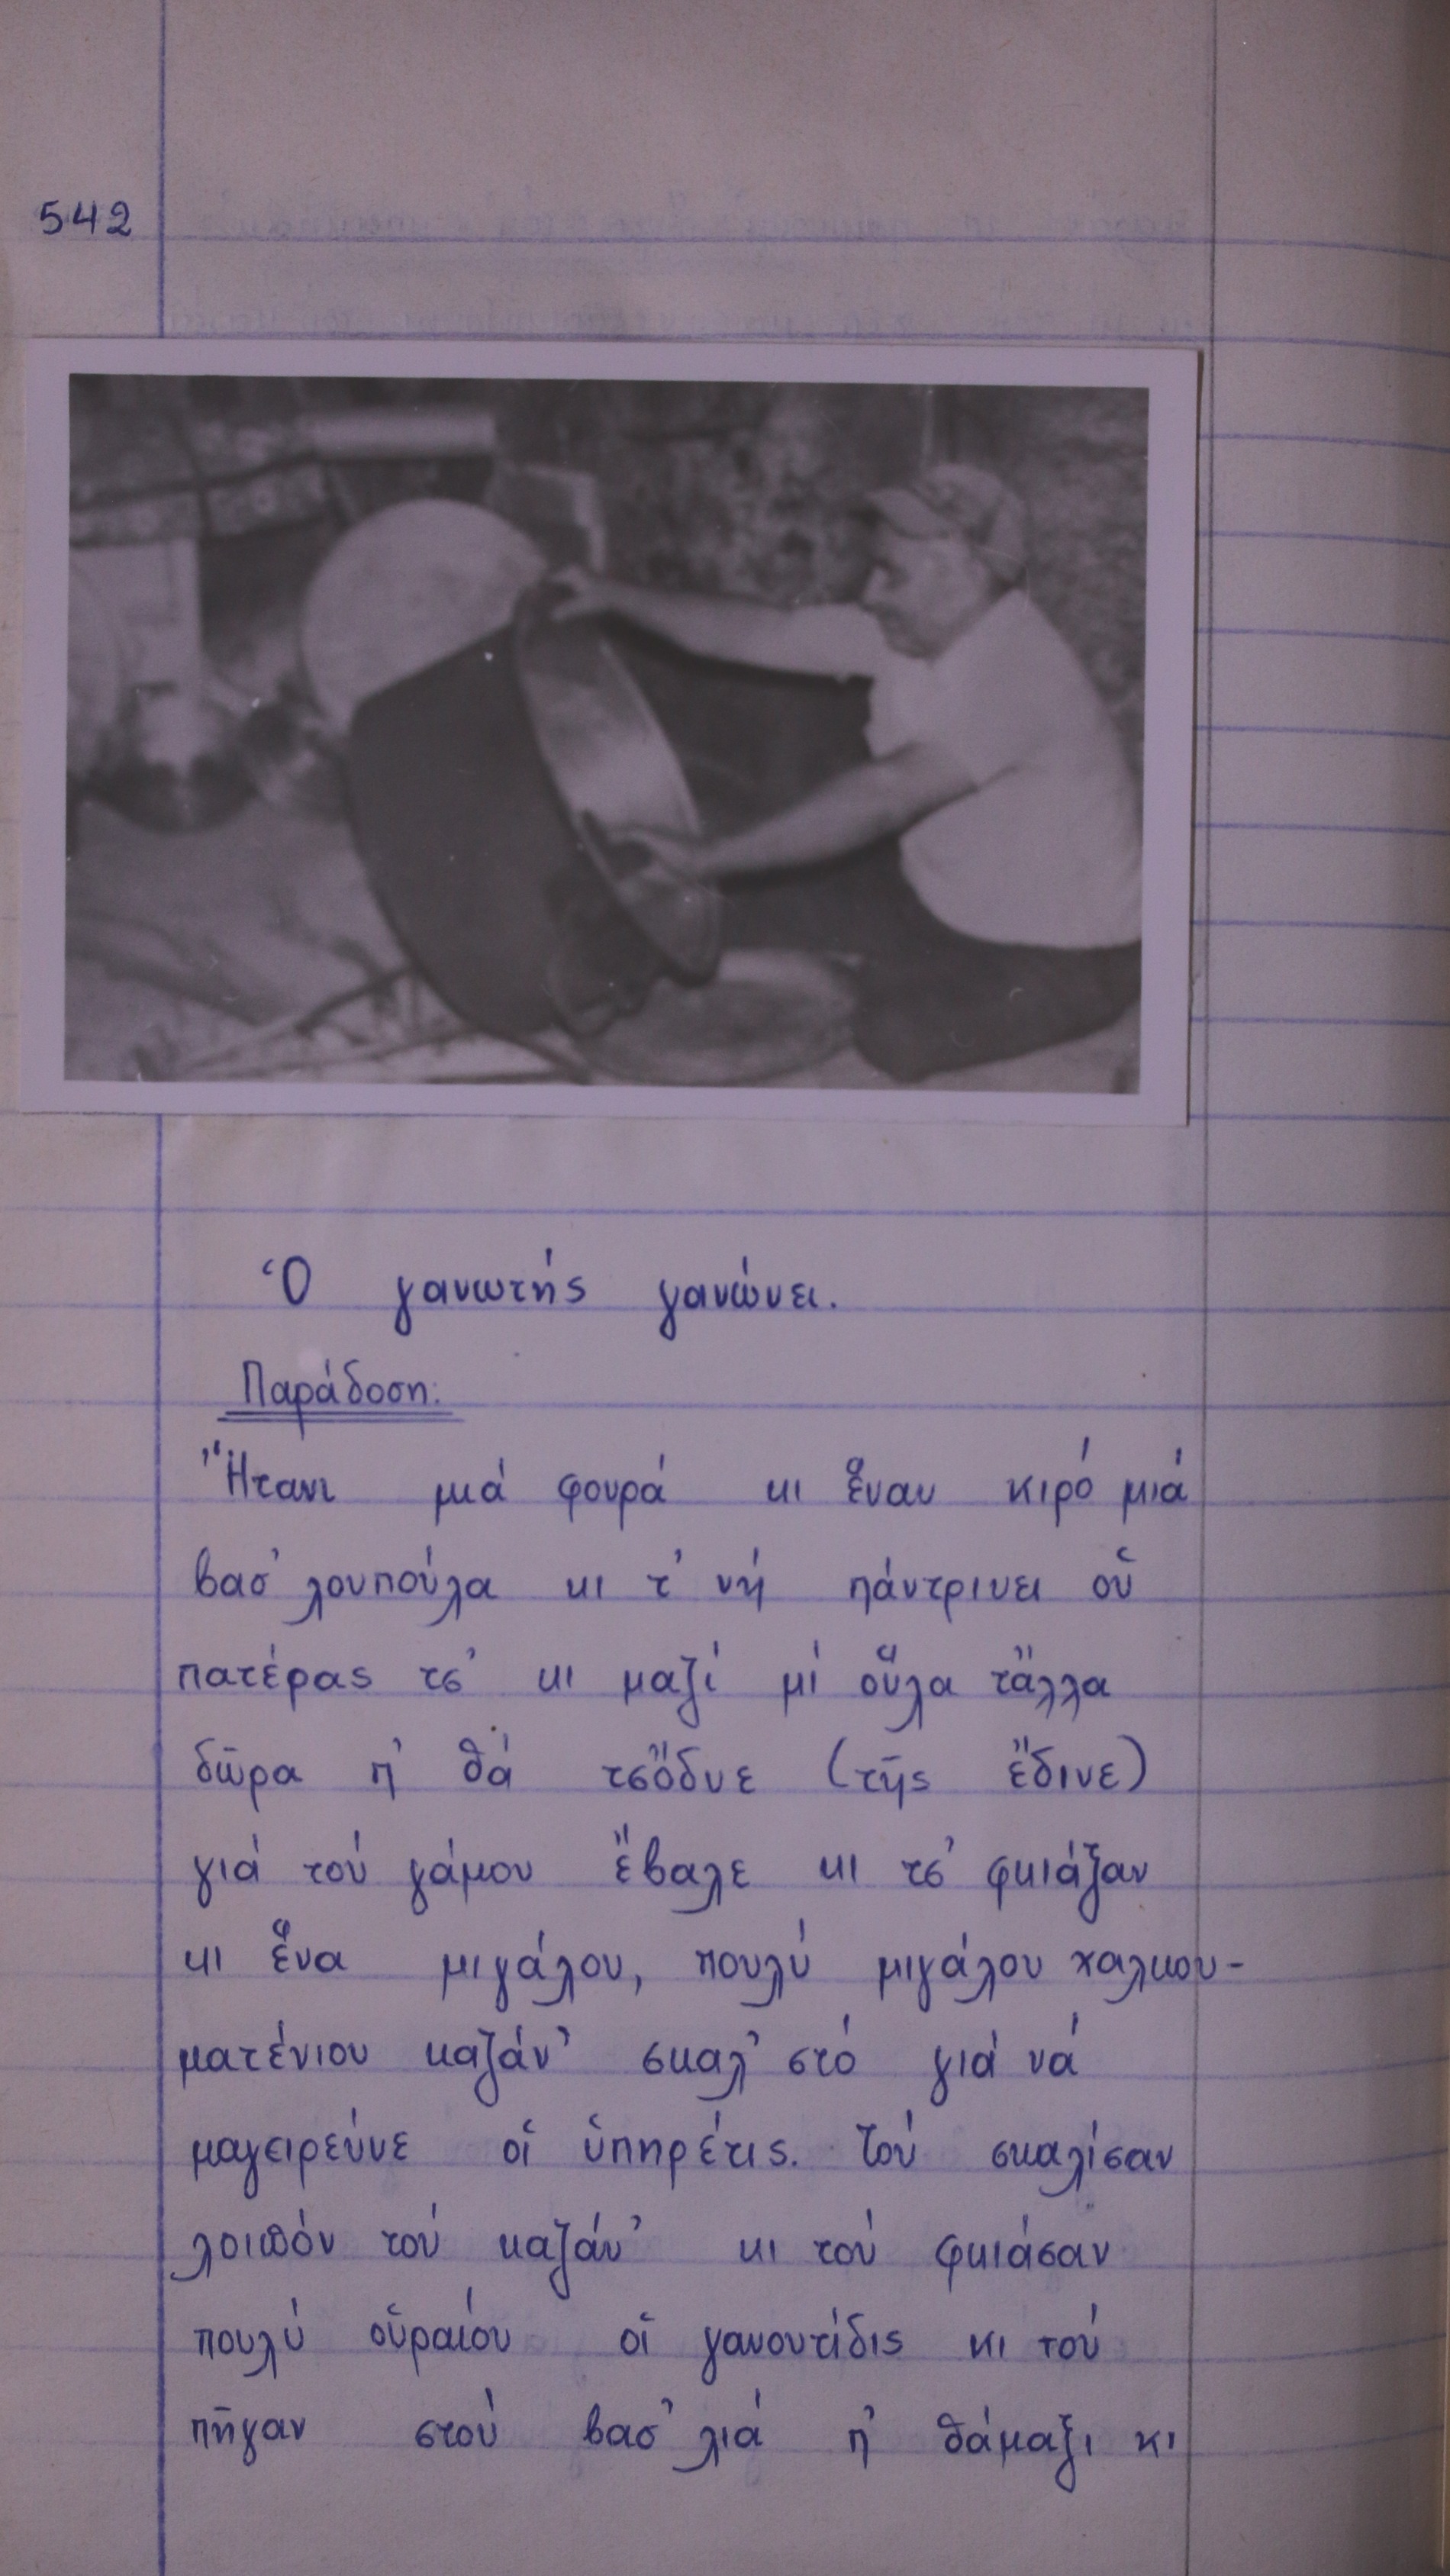 542
Ὁ γανωτής γανώνει.
Παράδοση:
Ἤτανι μιά φουρά κι ἕναν κιρό μιά
βασ' λουπούλα κι τ' νή πάντρινει οὑ
πατέρας τσ' κι μαζί μί οὕλα τἄλλα
δῶρα π' θά τσὄδνε (τῆς ἔδινε)
γιά τού γάμου ἔβαλε κι τσ' φκιάξαν
κι ἕνα μιγάλου, πουλύ μιγάλου χαλκου-
ματένιου καζάν' σκαλ' στό γιά νά
μαγειρεύνε οἱ ὑπηρέτις. Τού σκαλίσαν
λοιπόν τού καζάν' κι τού φκιάσαν
πουλύ οὑραίου οἱ γανουτίδις κι τού
πῆγαν στού βασ' λιά π' θάμαξι κι